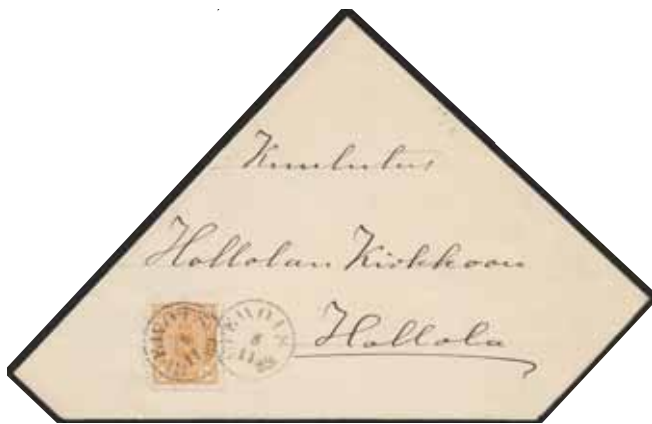 Kuulutus
Hollolan Kirkkoon
Hollola
8
11